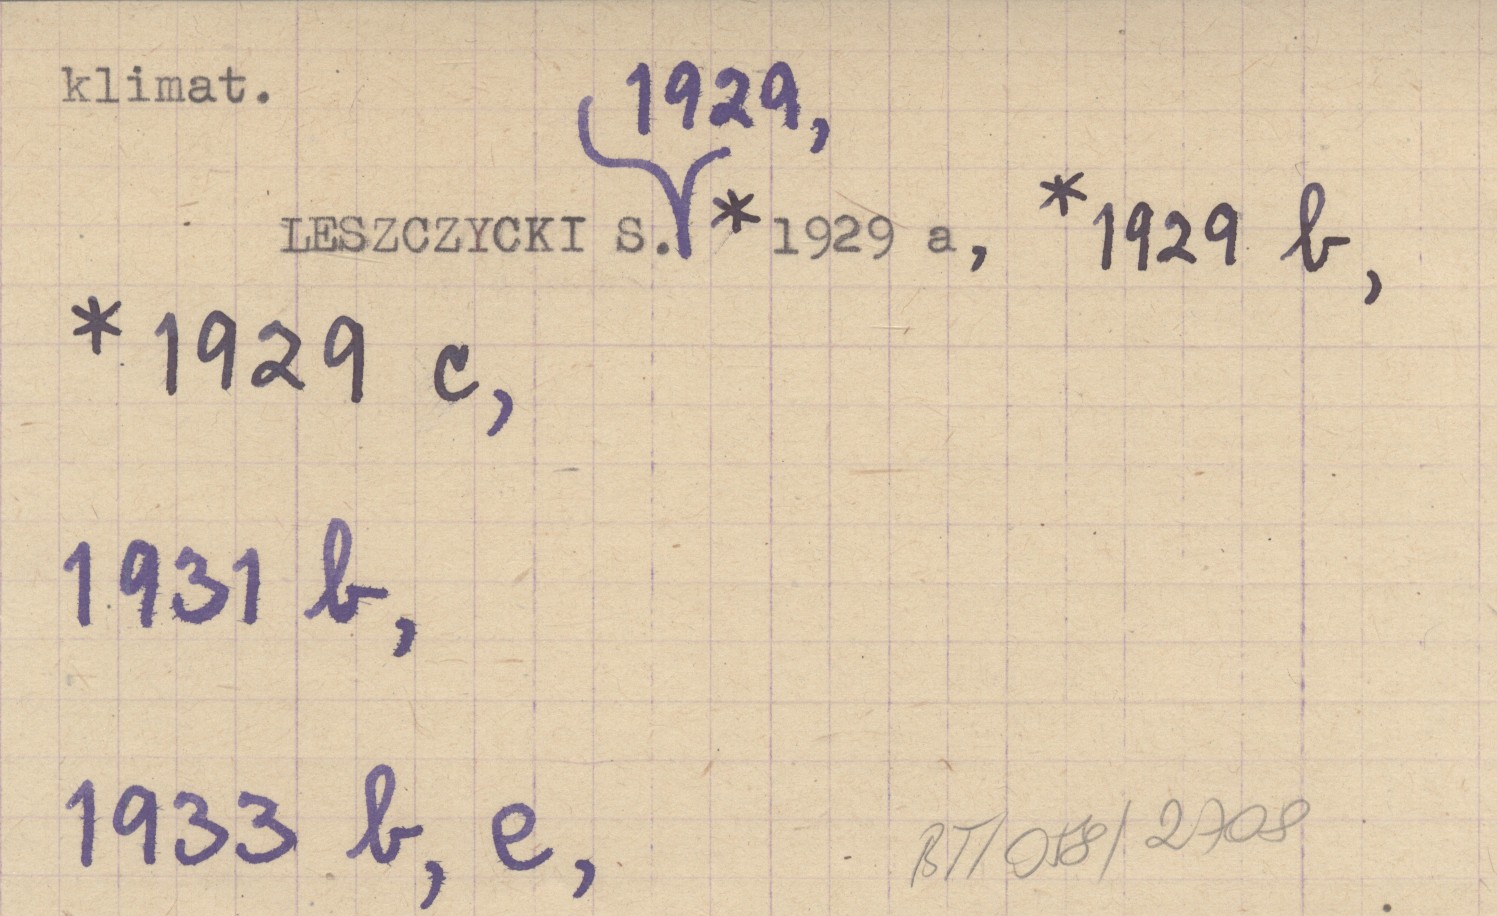 klimat.
1929,
LESZCZYCKI S. *1929 a, *1929 b,
*1929 c,
1931 b,
1933 b, e,
BT/058/2708